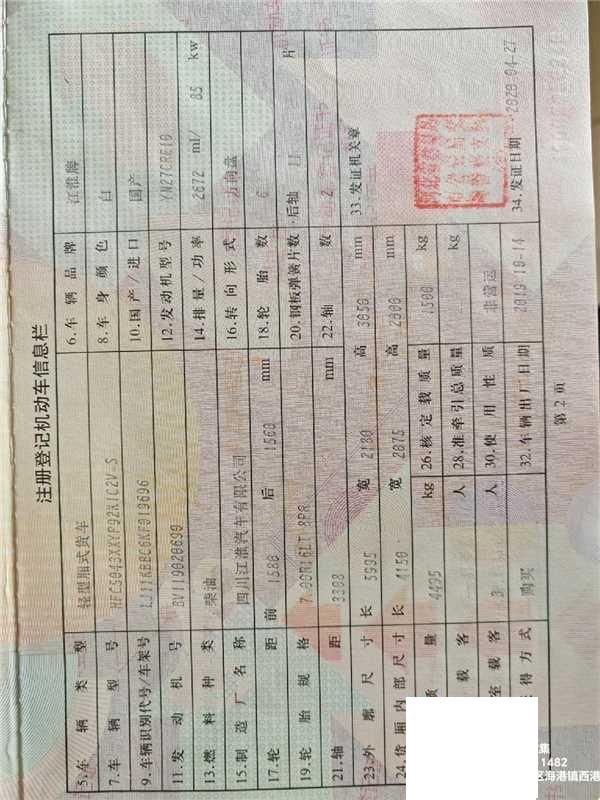 注册登记机动车信息栏
5.车辆类型 轻型厢式货车 6.车辆品牌 江淮牌
7.车辆型号 HFC5043XXYP92K1C2V-S 8.车身颜色 白
9.车辆识别代号/车架号 LJ11KBBC6KF019696 10.国产/进口 国产
11.发动机号 BV119020690 12.发动机型号 YN27CRE1D
13.燃料种类 柴油 14.排量/功率 2672 ml/ 85 kw
15.制造厂名称 四川江淮汽车有限公司 16.转向形式 方向盘
17.轮距 前 1580 后 1560 mm 18.轮胎数 6
19.轮胎规格 7.00R16LT 8PR 20.钢板弹簧片数 后轴 片
21.轴距 3308 mm 22.轴数 2
23.外廓尺寸 长 5995 宽 2180 高 3050 mm 33.发证机关章
24.货厢内部尺寸 长 4150 宽 2075 高 2000 mm
质量 4495 kg 26.核定载质量 1500 kg
载客 人 28.准牵引总质量 kg
室载客 3 人 30.使用性质 非营运
得方式 购买 32.车辆出厂日期 2019-10-14 34.发证日期 2020-04-27
第 2 页
集
1482
区海港镇西港